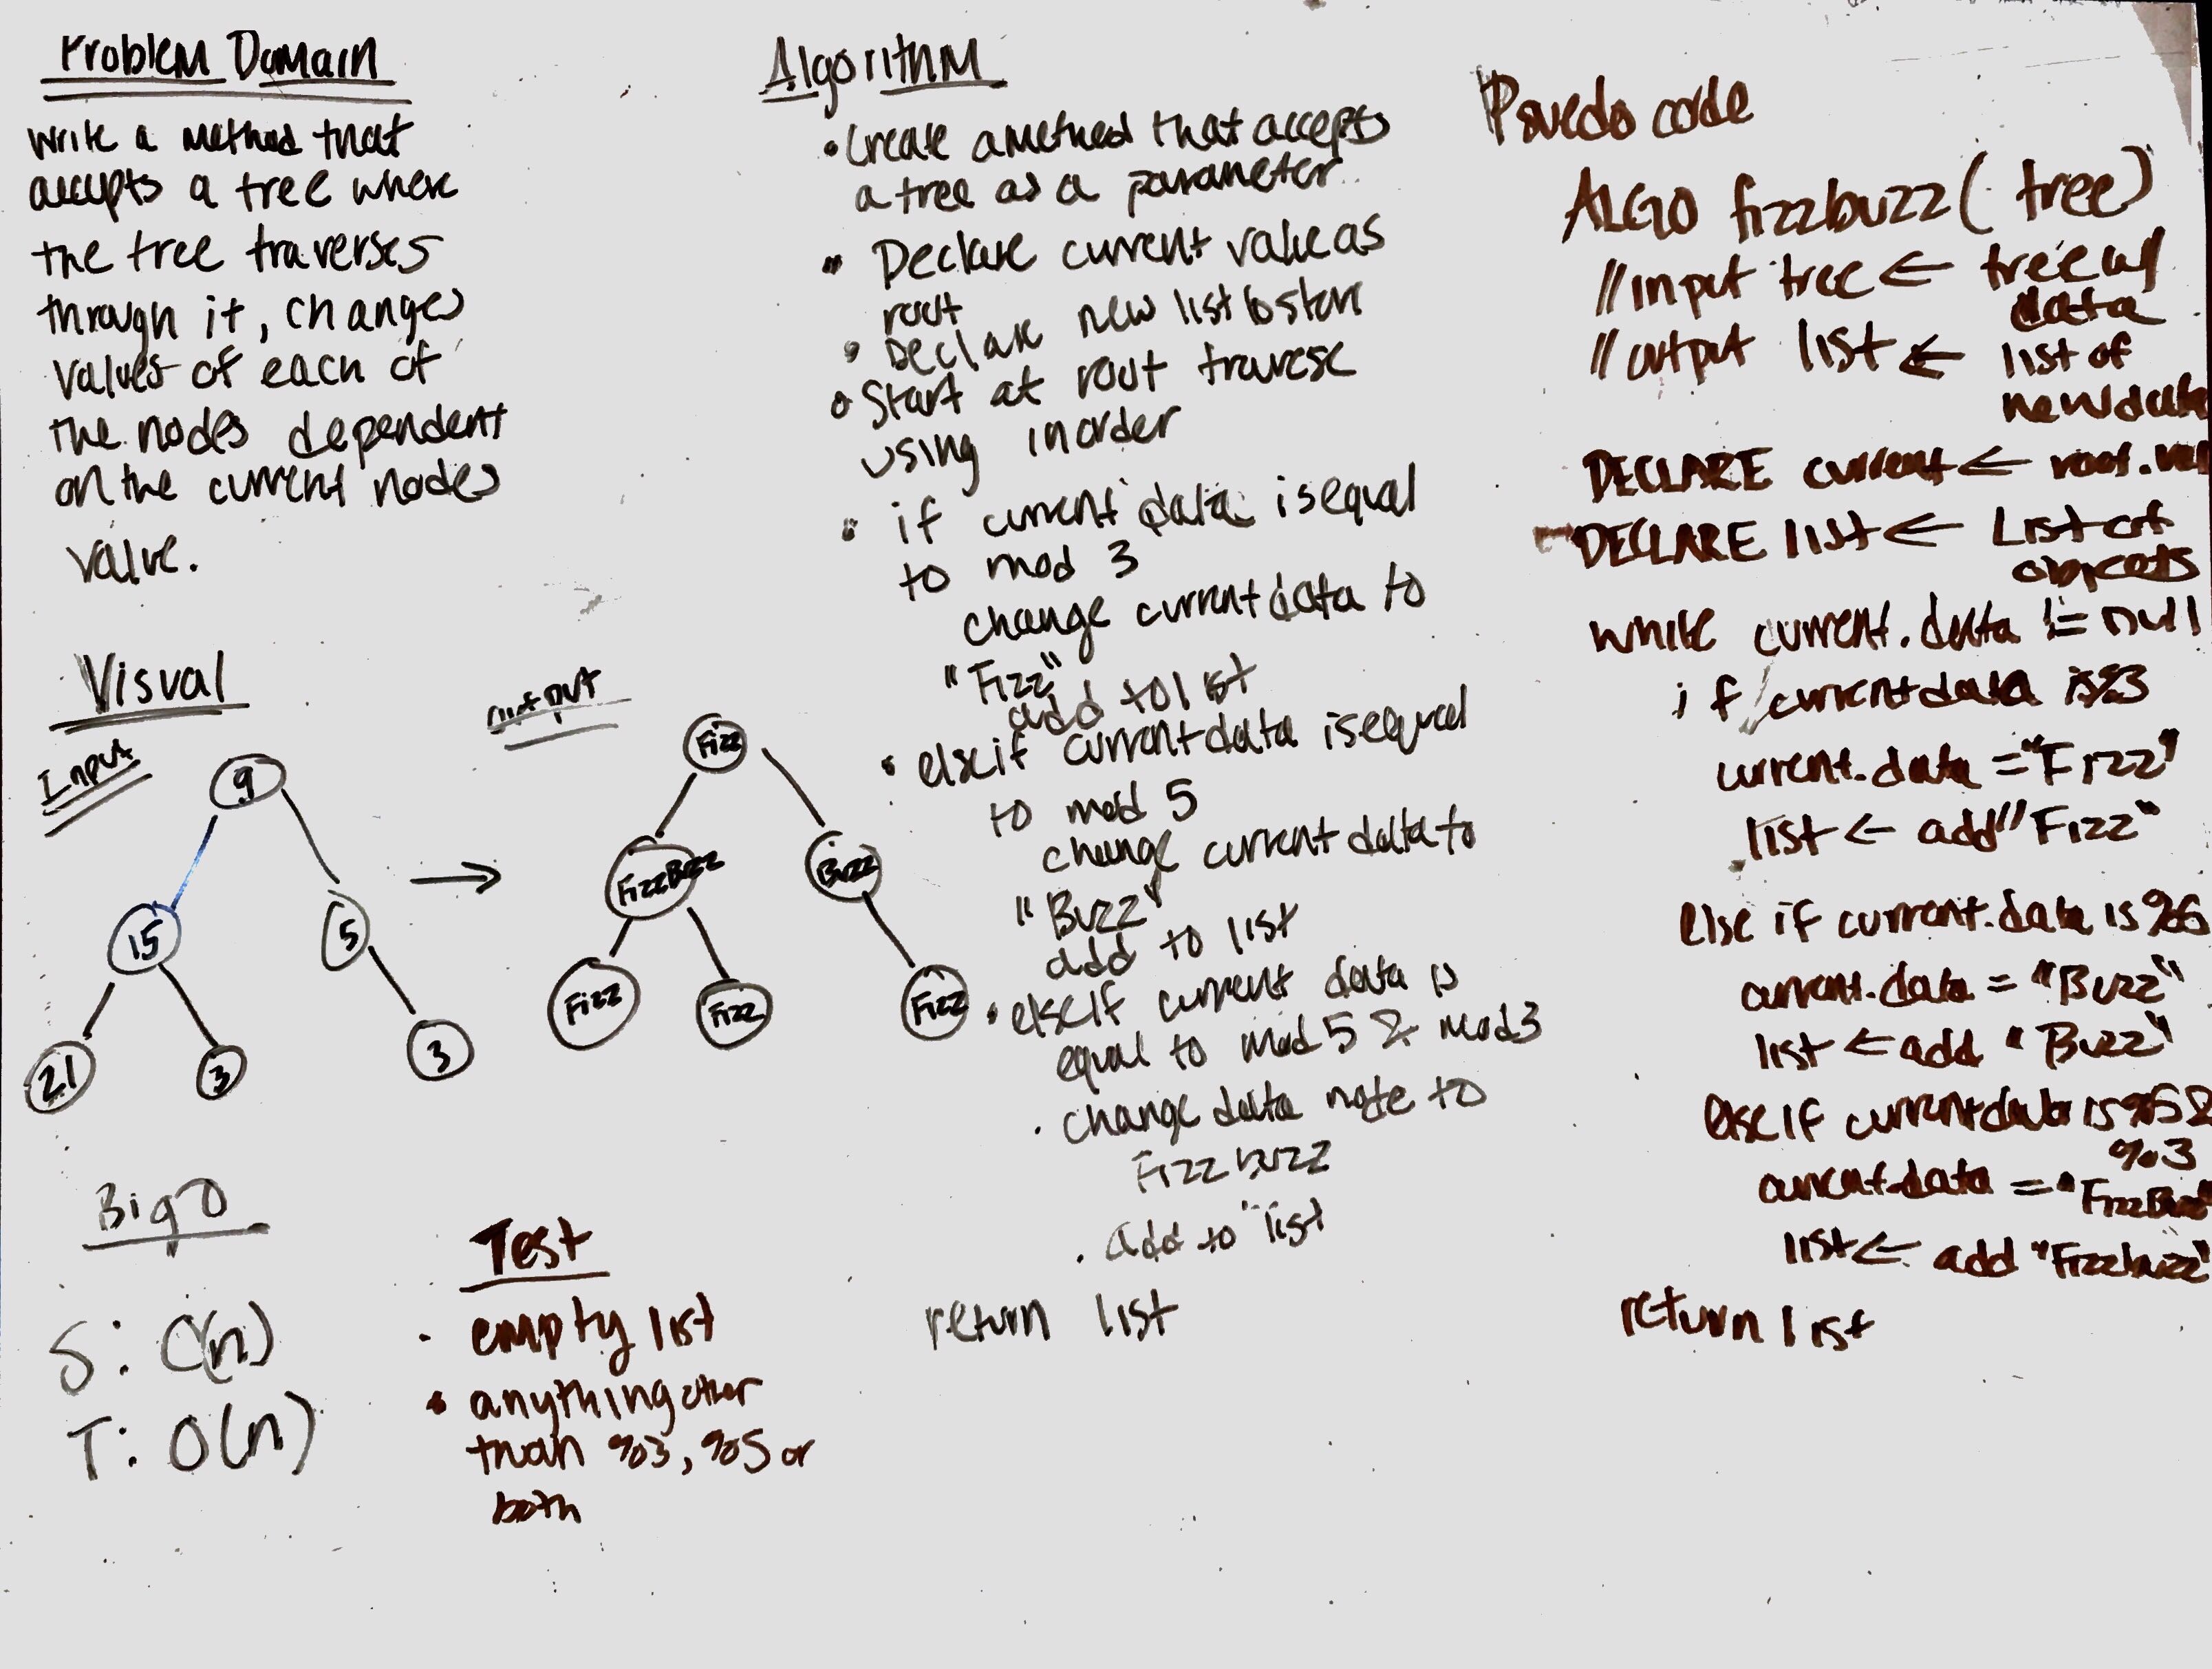 Problem Domain
write a method that
accepts a tree where
the tree traverses
through it, changes
values of each of
the nodes dependent
on the current nodes
value.
Visual
Input
9
15
5
21
3
3
output
Fizz
FizzBuzz
Buzz
Fizz
Fizz
Fizz
Big O
S: O(n)
T: O(n)
Test
empty list
anything other
than %3, %5 or
both
Algorithm
• Create a method that accepts
a tree as a parameter
• Declare current value as
root
• Declare new list to store
• Start at root traverse
using inorder
• if current data is equal
to mod 3
change current data to
"Fizz"
add to list
• else if current data is equal
to mod 5
change current data to
"Buzz"
add to list
• else if current data is
equal to mod 5 & mod 3
• change data note to
Fizzbuzz
• add to list
return list
Psuedo code
ALGO fizzbuzz( tree)
// input tree ← tree w/
data
// output list ← list of
new data
DECLARE current ← root.val
DECLARE list ← List of
objects
while current.data != null
if current data is %3
current.data = "Fizz"
list ← add "Fizz"
else if current.data is %5
current.data = "Buzz"
list ← add "Buzz"
else if current data is %5 &
%3
current.data = "FizzBuzz"
list ← add "Fizzbuzz"
return list